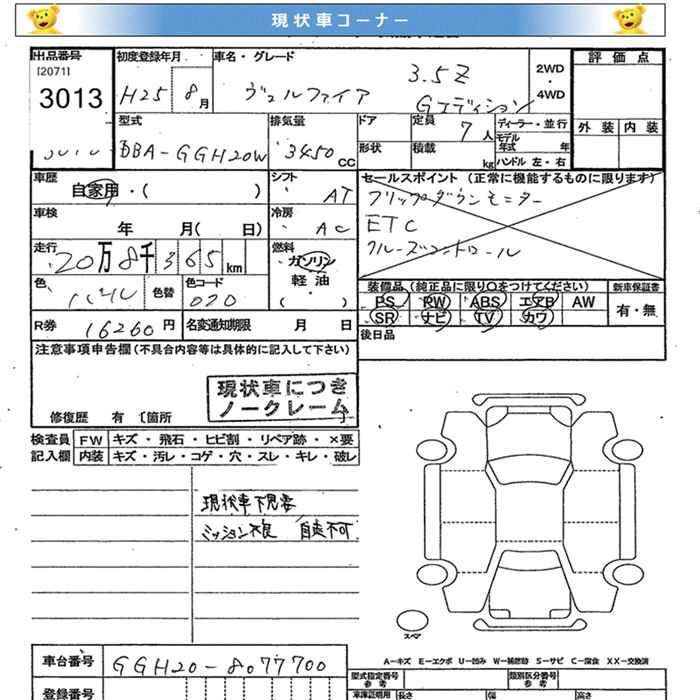 現状車コーナー
出品番号
[2071]
3013
初度登録年月
H25 8月
車名・グレード
ヴェルファイア
3.5Z
Gエディション
2WD
・
4WD
評価点
外装 内装
型式
DBA-GGH20W
排気量
3450 CC
ドア
形状
定員
7人
積載
kg
ディーラー・並行
モデル年式 年
ハンドル 左・右
車歴
自家用・( )
シフト
AT
セールスポイント (正常に機能するものに限ります)
フリップダウンモニター
ETC
クルーズコントロール
車検
年 月( 日)
冷房
AC
走行
20万8千365km
燃料
ガソリン
軽油
・( )
色
パール
色替
色コード
070
装備品(純正品に限り○をつけてください)
PS PW ABS エアB AW
SR ナビ TV カワ
新車保証書
有・無
R券 16260円
名変通知期限 月 日
後日品
注意事項申告欄(不具合内容等は具体的に記入して下さい)
現状車につき
ノークレーム
修復歴 有 〔箇所
検査員記入欄
FW キズ・飛石・ヒビ割・リペア跡・×要
内装 キズ・汚レ・コゲ・穴・スレ・キレ・破レ
現状車下見要
ミッション不良 自走不可
スペア
A-キズ E-エクボ U-凹み W-補修跡 S-サビ C-腐食 XX-交換済
車台番号
GGH20-8077700
登録番号
型式指定番号
参考
類別区分番号
参考
車庫証明用
長さ
幅
高さ